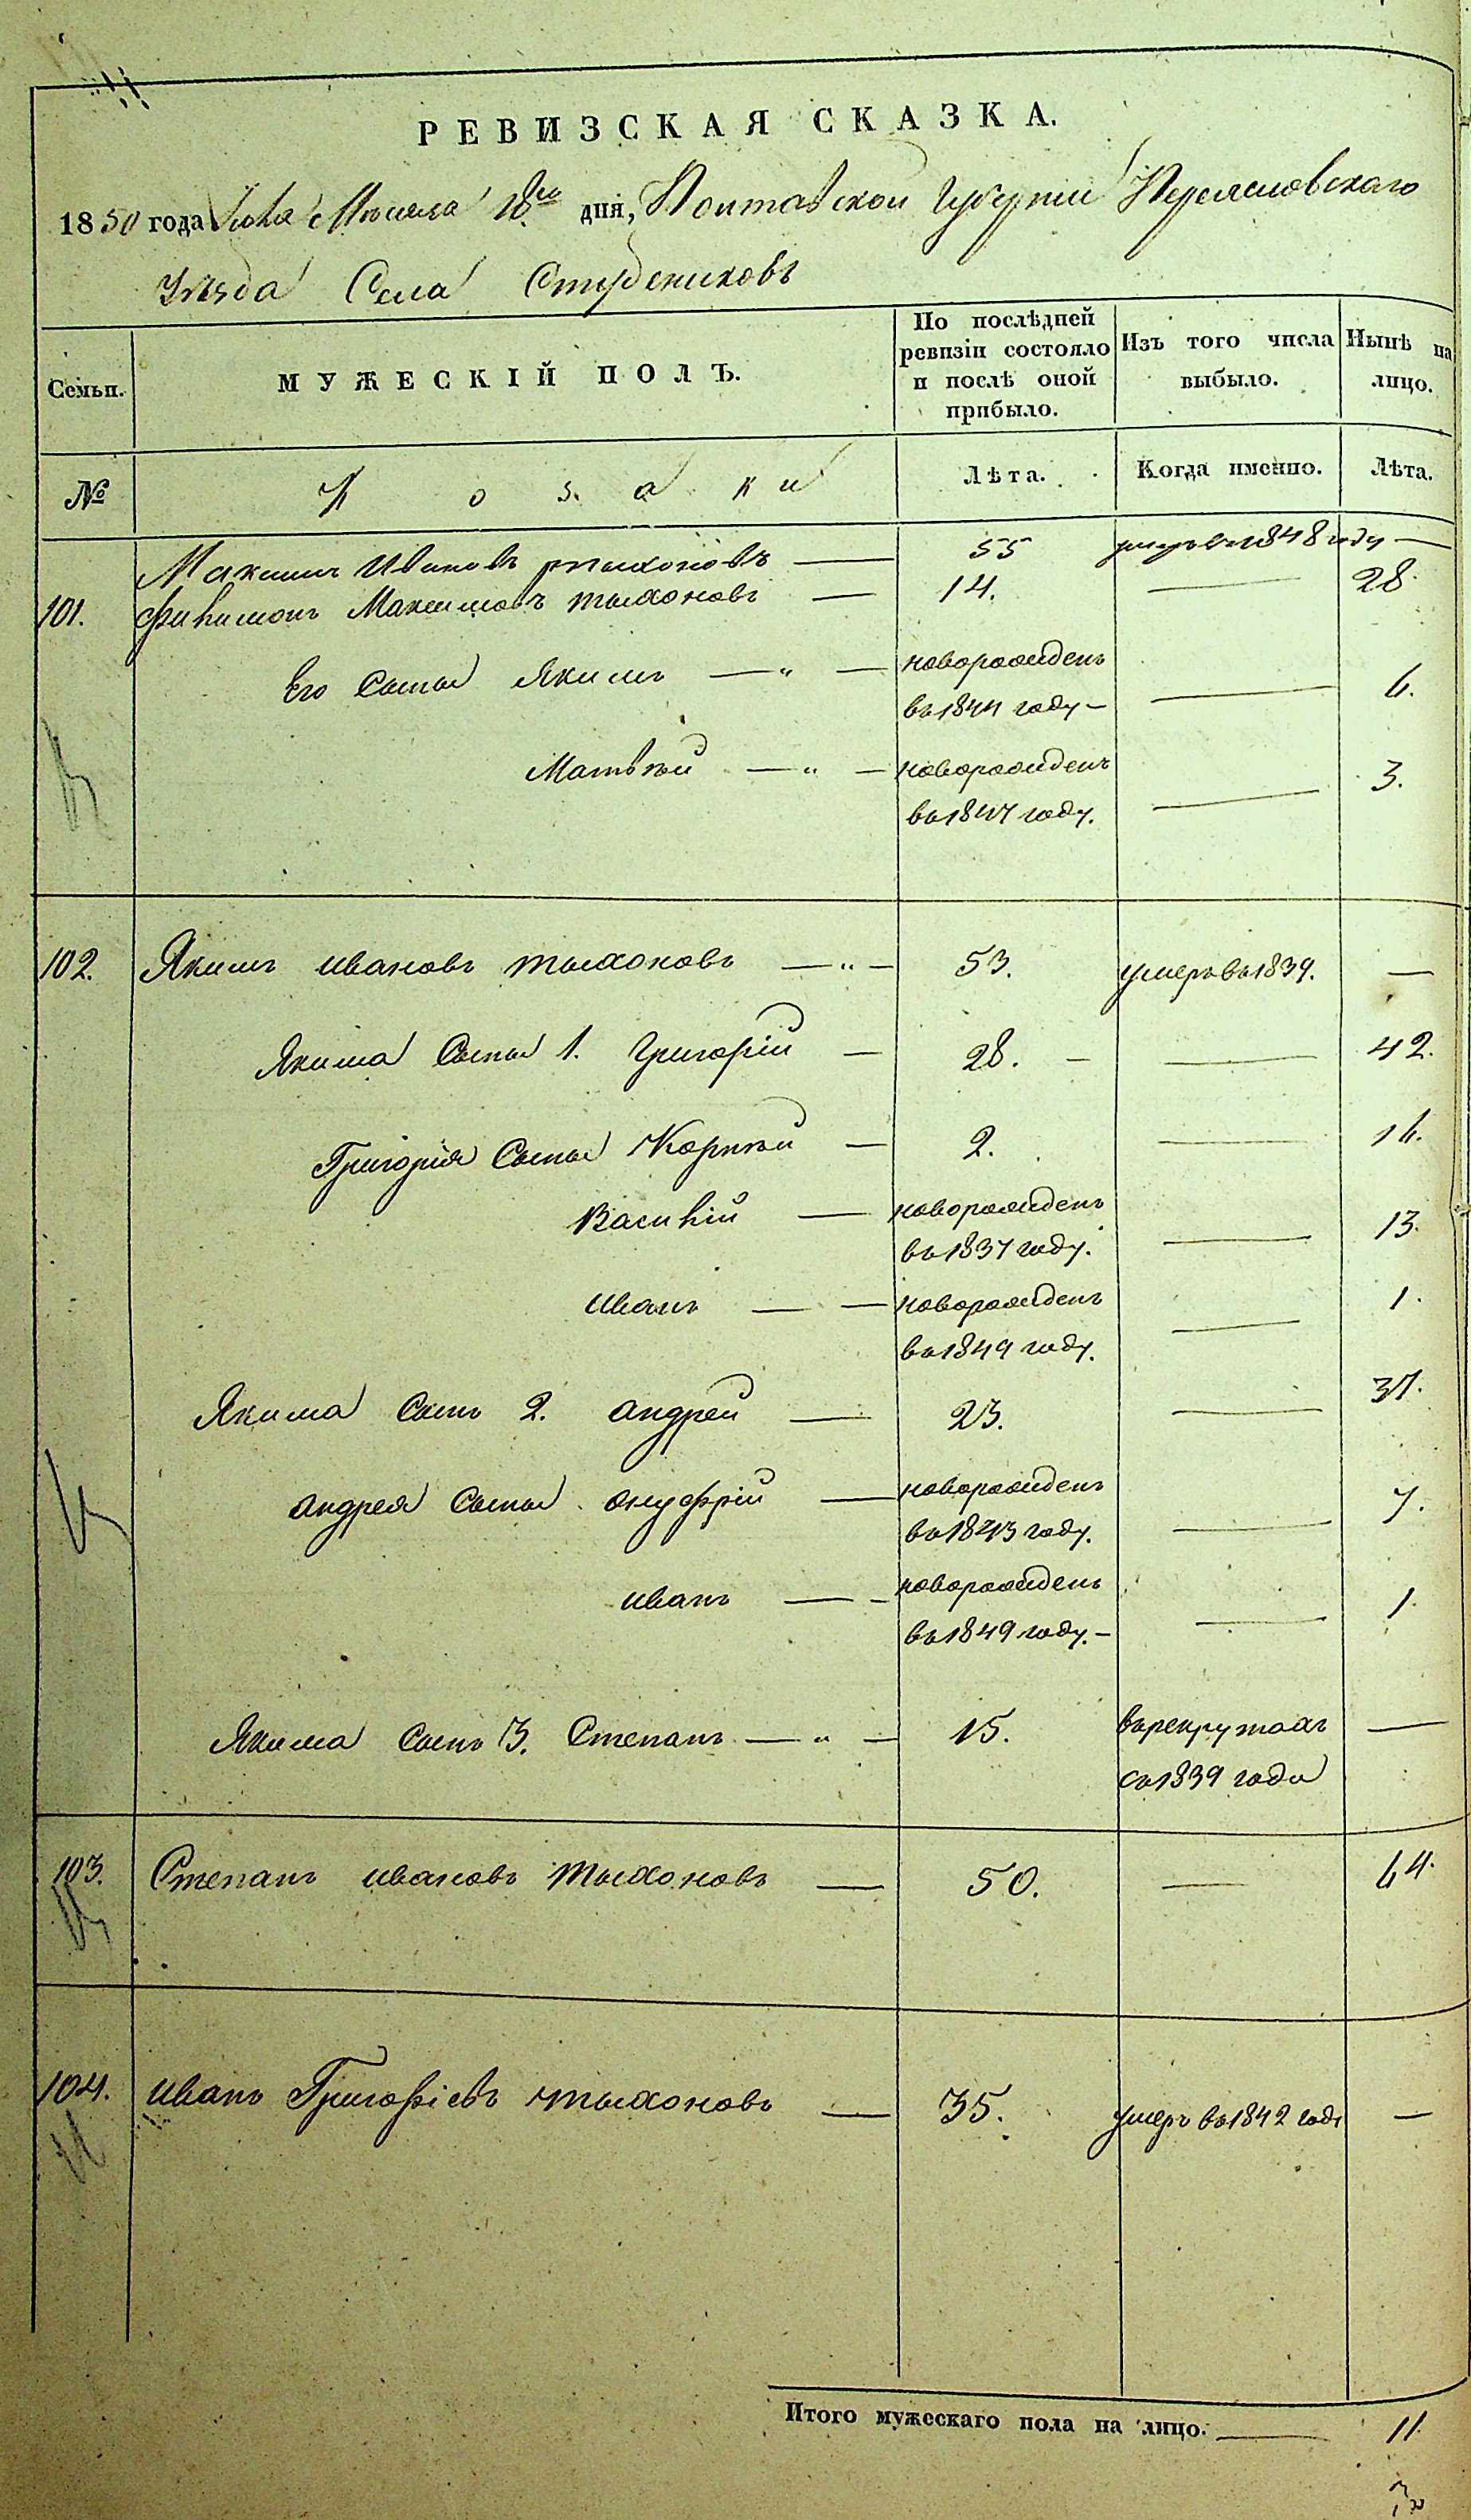 РЕВИЗСКАЯ СКАЗКА.
1850 года Мѣсяца 18го дня, Полтавской Губерніи Переяславскаго
Уѣзда Села Студениковъ
Семьи. МУЖЕСКІЙ ПОЛЪ. По послѣдней ревизіи состояло и послѣ оной прибыло. Изъ того числа выбыло. Нынѣ на лицо.
№ Козаки Лѣта. Когда именно. Лѣта.
Максимъ Ивановъ Тыхоновъ — 55 умеръ въ 1848 году —
101. Филимонъ Максимовъ Тыхоновъ — 14. — 28.
Его Сыны Якимъ — " — новорожденъ
въ 1844 году — — 6.
Матвѣй — " — новорожденъ
въ 1847 году. — 3.
102. Якимъ Ивановъ Тыхоновъ — " — 53. умеръ въ 1839. —
Якима Сыны 1. Григорій — 28. — — 42.
Григорія Сыны Корнѣй — 2. — 16.
Василій — новорожденъ
въ 1837 году. — 13.
Иванъ — — новорожденъ
въ 1849 году. — 1.
Якима Сынъ 2. Андрей — 23. — 37.
Андрея Сыны Онуфрій — новорожденъ
въ 1843 году. — 7.
Иванъ — новорожденъ
въ 1849 году. — — 1.
Якима Сынъ 3. Степанъ — " — 15. въ рекрутахъ —
съ 1839 года
103. Степанъ Ивановъ Тыхоновъ — 50. — 64.
104. Иванъ Григорьевъ Тыхоновъ — 35. умеръ въ 1842 годѣ —
Итого мужескаго пола на лицо. — 11.